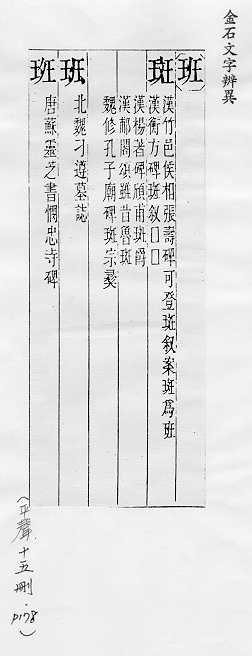 金石文字辨異
班
斑
漢竹邑侯相張壽碑可登斑叙案斑爲班
漢衡方碑斑叙□□
漢楊著碑頒甫班爵
漢郙閣頌雖昔魯斑
魏修孔子廟碑班宗彝
班
北魏刁遵墓誌
班
唐蘇靈芝書憫忠寺碑
(平聲十五刪 p178)